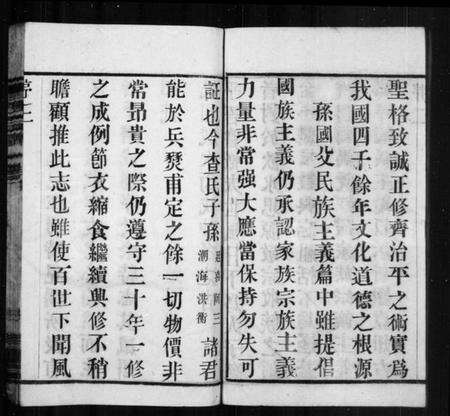 聖格致誠正修齊治平之術實爲
我國四千餘年文化道德之根源
孫國父民族主義篇中雖提倡
國族主義仍承認家族宗族主義
力量非常强大應當保持勿失可
証也今查氏子孫
潮海洪衛
諸君
能於兵燹甫定之餘一切物價非
常昻貴之際仍遵守三十年一修
之成例節衣縮食繼續興修不稍
瞻顧推此志也雖使百世下聞風